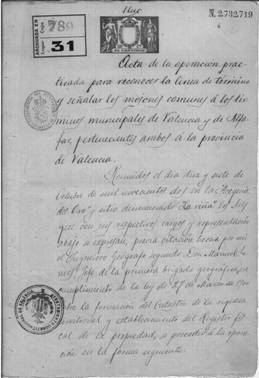 Hijo
N. 2732719
ARCHIVADA EN
Caja 789
Legajo 31
Acta de la operación prac-
ticada para reconocer la línea de término
y señalar los mojones comunes á los tér-
minos municipales de Valencia y de Alfa-
far, pertenecientes ambos á la provincia
de Valencia.
Reunidos el día diez y siete de
Octubre de mil novecientos dos en la
del Oro y sitio denominado La
que con sus respectivos cargos y representación
abajo se expresan, previa citación hecha por mí
el Ingeniero Geógrafo segundo Don Manuel
Jefe de la primera brigada geográfica, en
cumplimiento de la ley de 27 de Marzo de 1900
sobre la formación del Catastro de la riqueza
territorial y establecimiento del Registro fis-
cal de la propiedad, se procedió á la opera-
ción en la forma siguiente